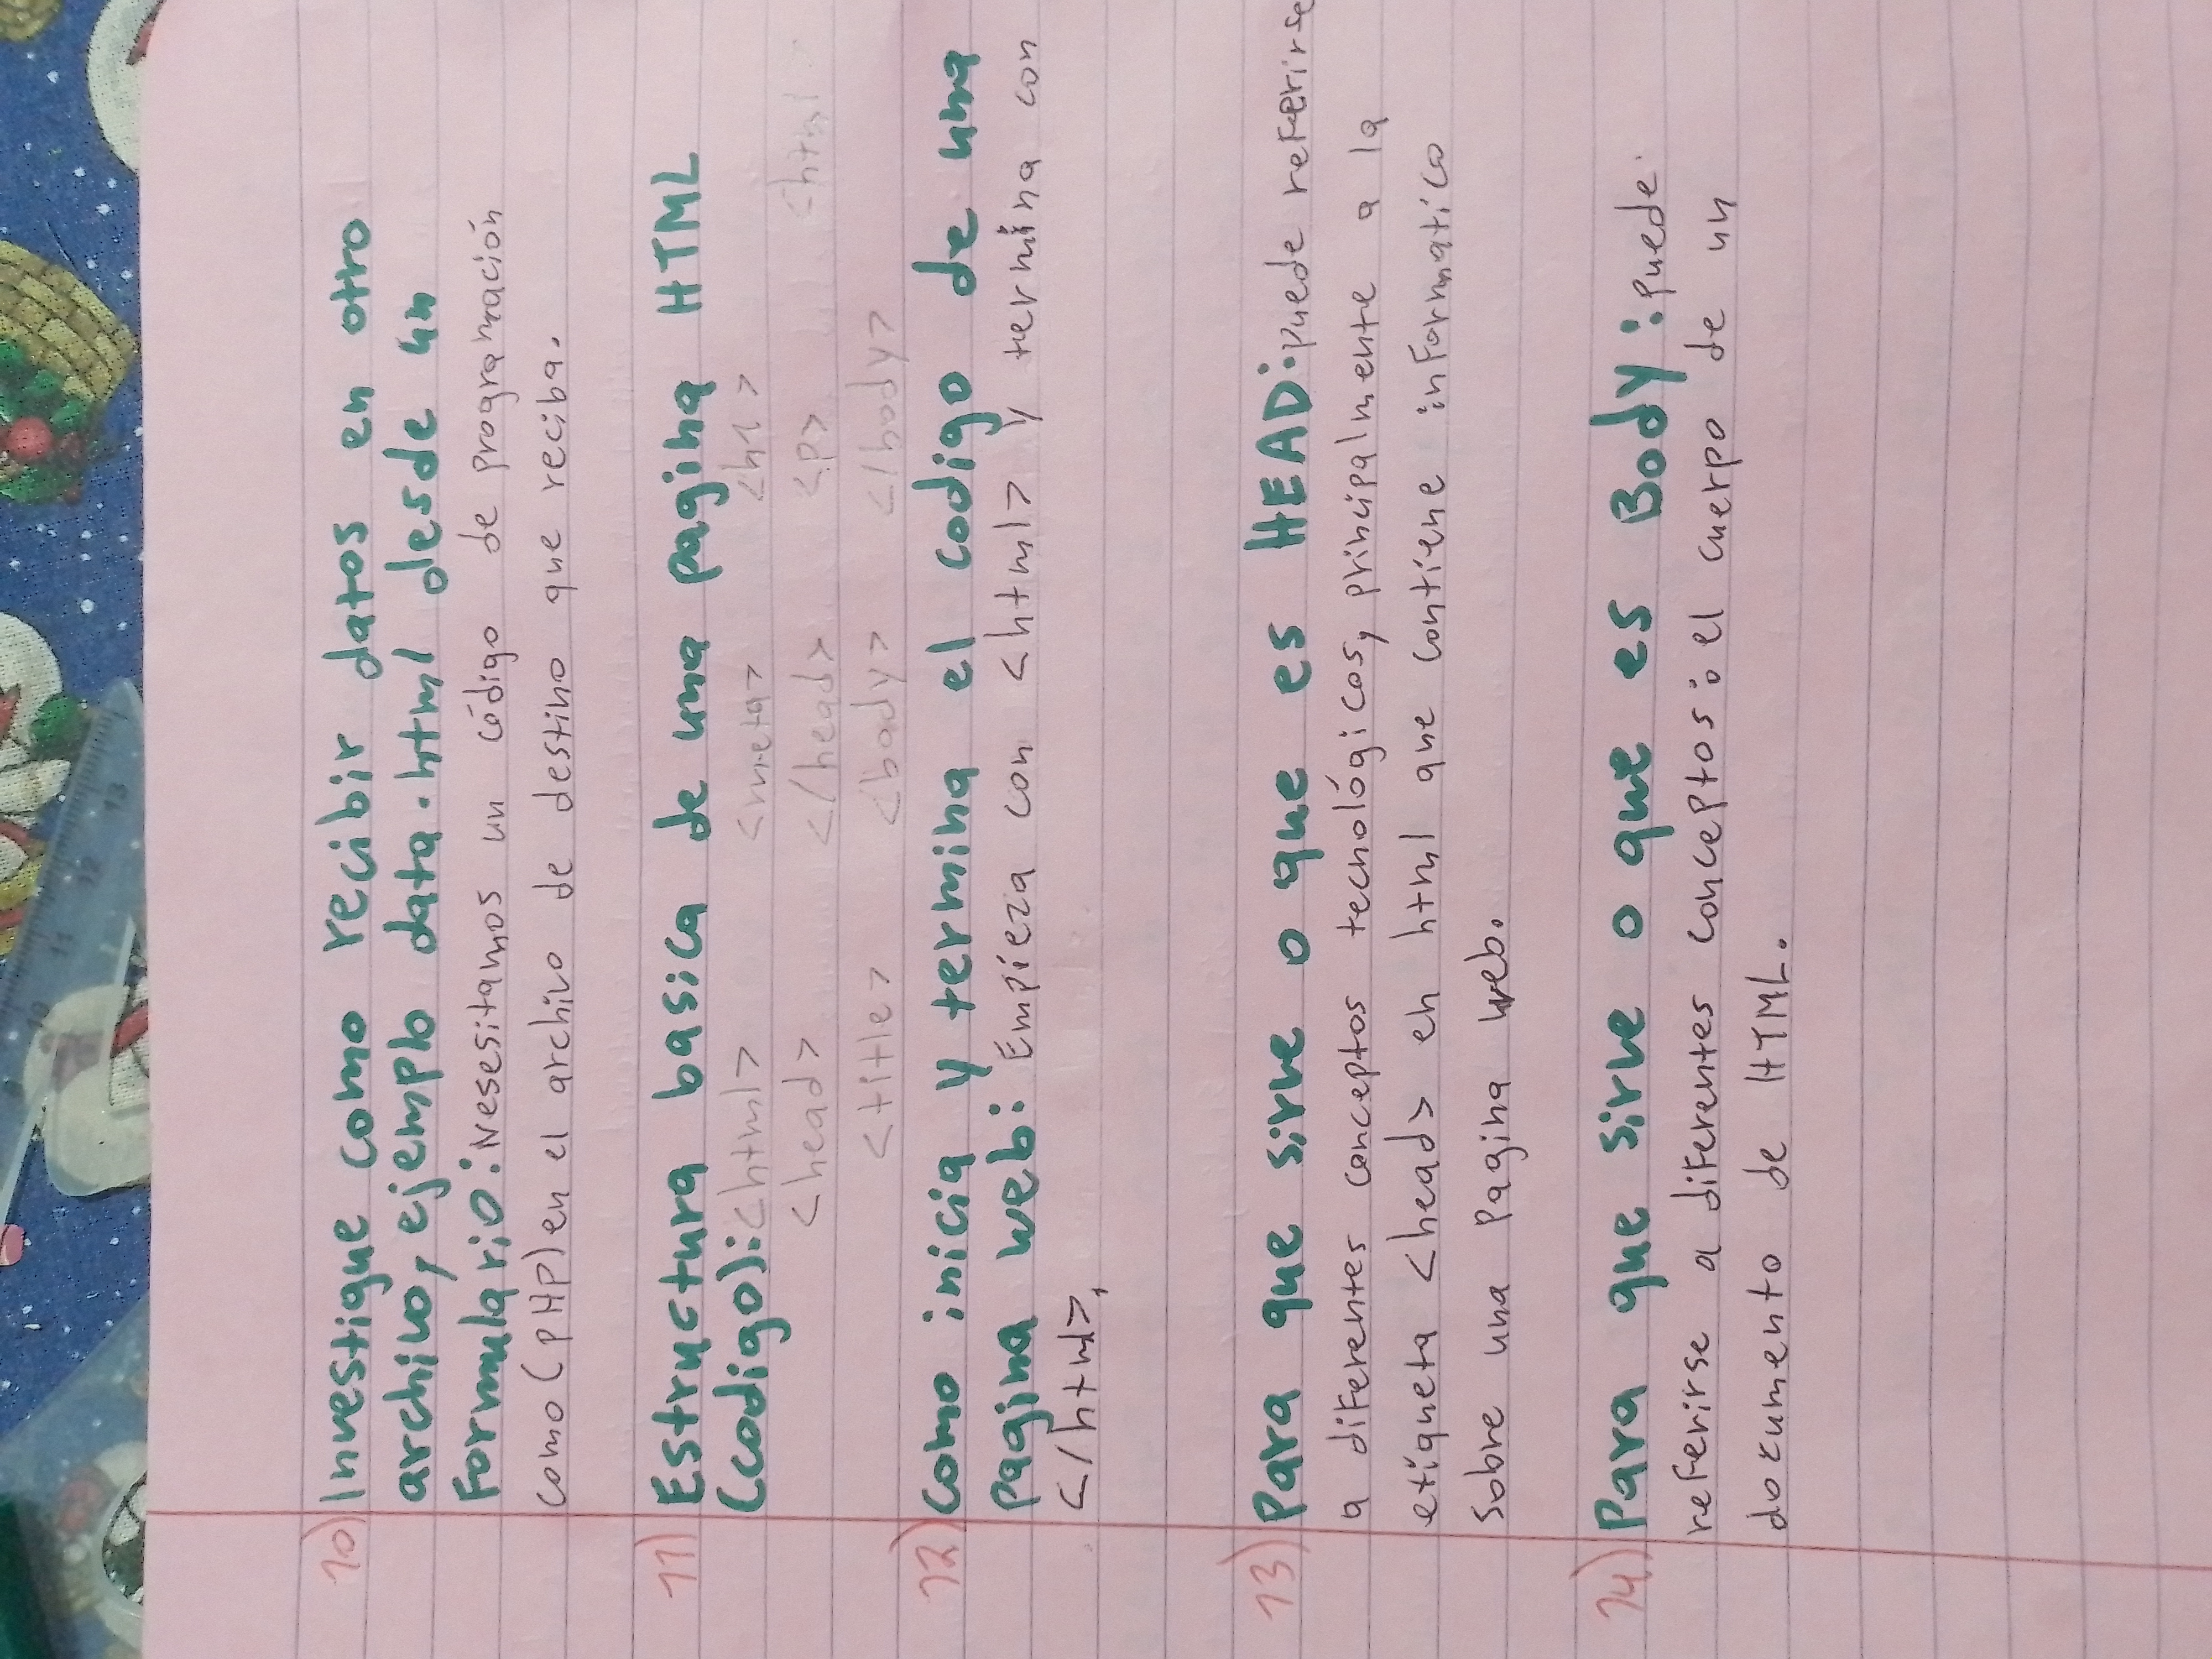 10) Investigue como recibir datos en otro
archivo, ejemplo data.html desde un
Formulario: Nesesitamos un código de programación
como (PHP) en el archivo de destino que reciba.
11) Estructura basica de una pagina HTML
(codigo): <html> <meta> <h1>
<head> </head> <p> <html
<title> <body> </body>
12) como inicia y termina el codigo de una
Pagina web: Empieza con <html> y termina con
</html>,
13) Para que sirve o que es HEAD: puede referirse
a diferentes conceptos tecnológicos, principalmente a la
etiqueta <head> en html que contiene informatico
sobre una Pagina web.
14) Para que sirve o que es Body: puede.
referirse a diferentes conceptos: el cuerpo de un
documento de HTML.
10 11 12 13